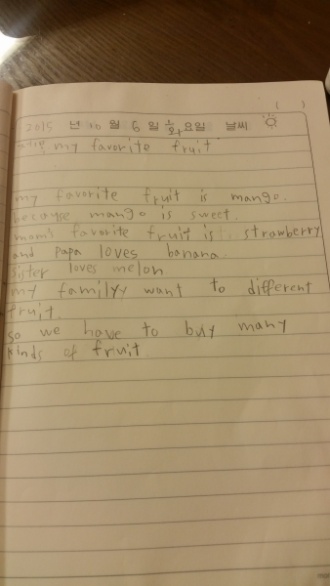 ( )
2015 년 10 월 6 일 화요일 날씨
제목: my favorite fruit
my favorite fruit is mango.
because mango is sweet.
mom's favorite fruit is strawberry
and papa loves banana.
Sister loves melon
my familyy want to different
fruit.
so we have to buy many
kinds of fruit